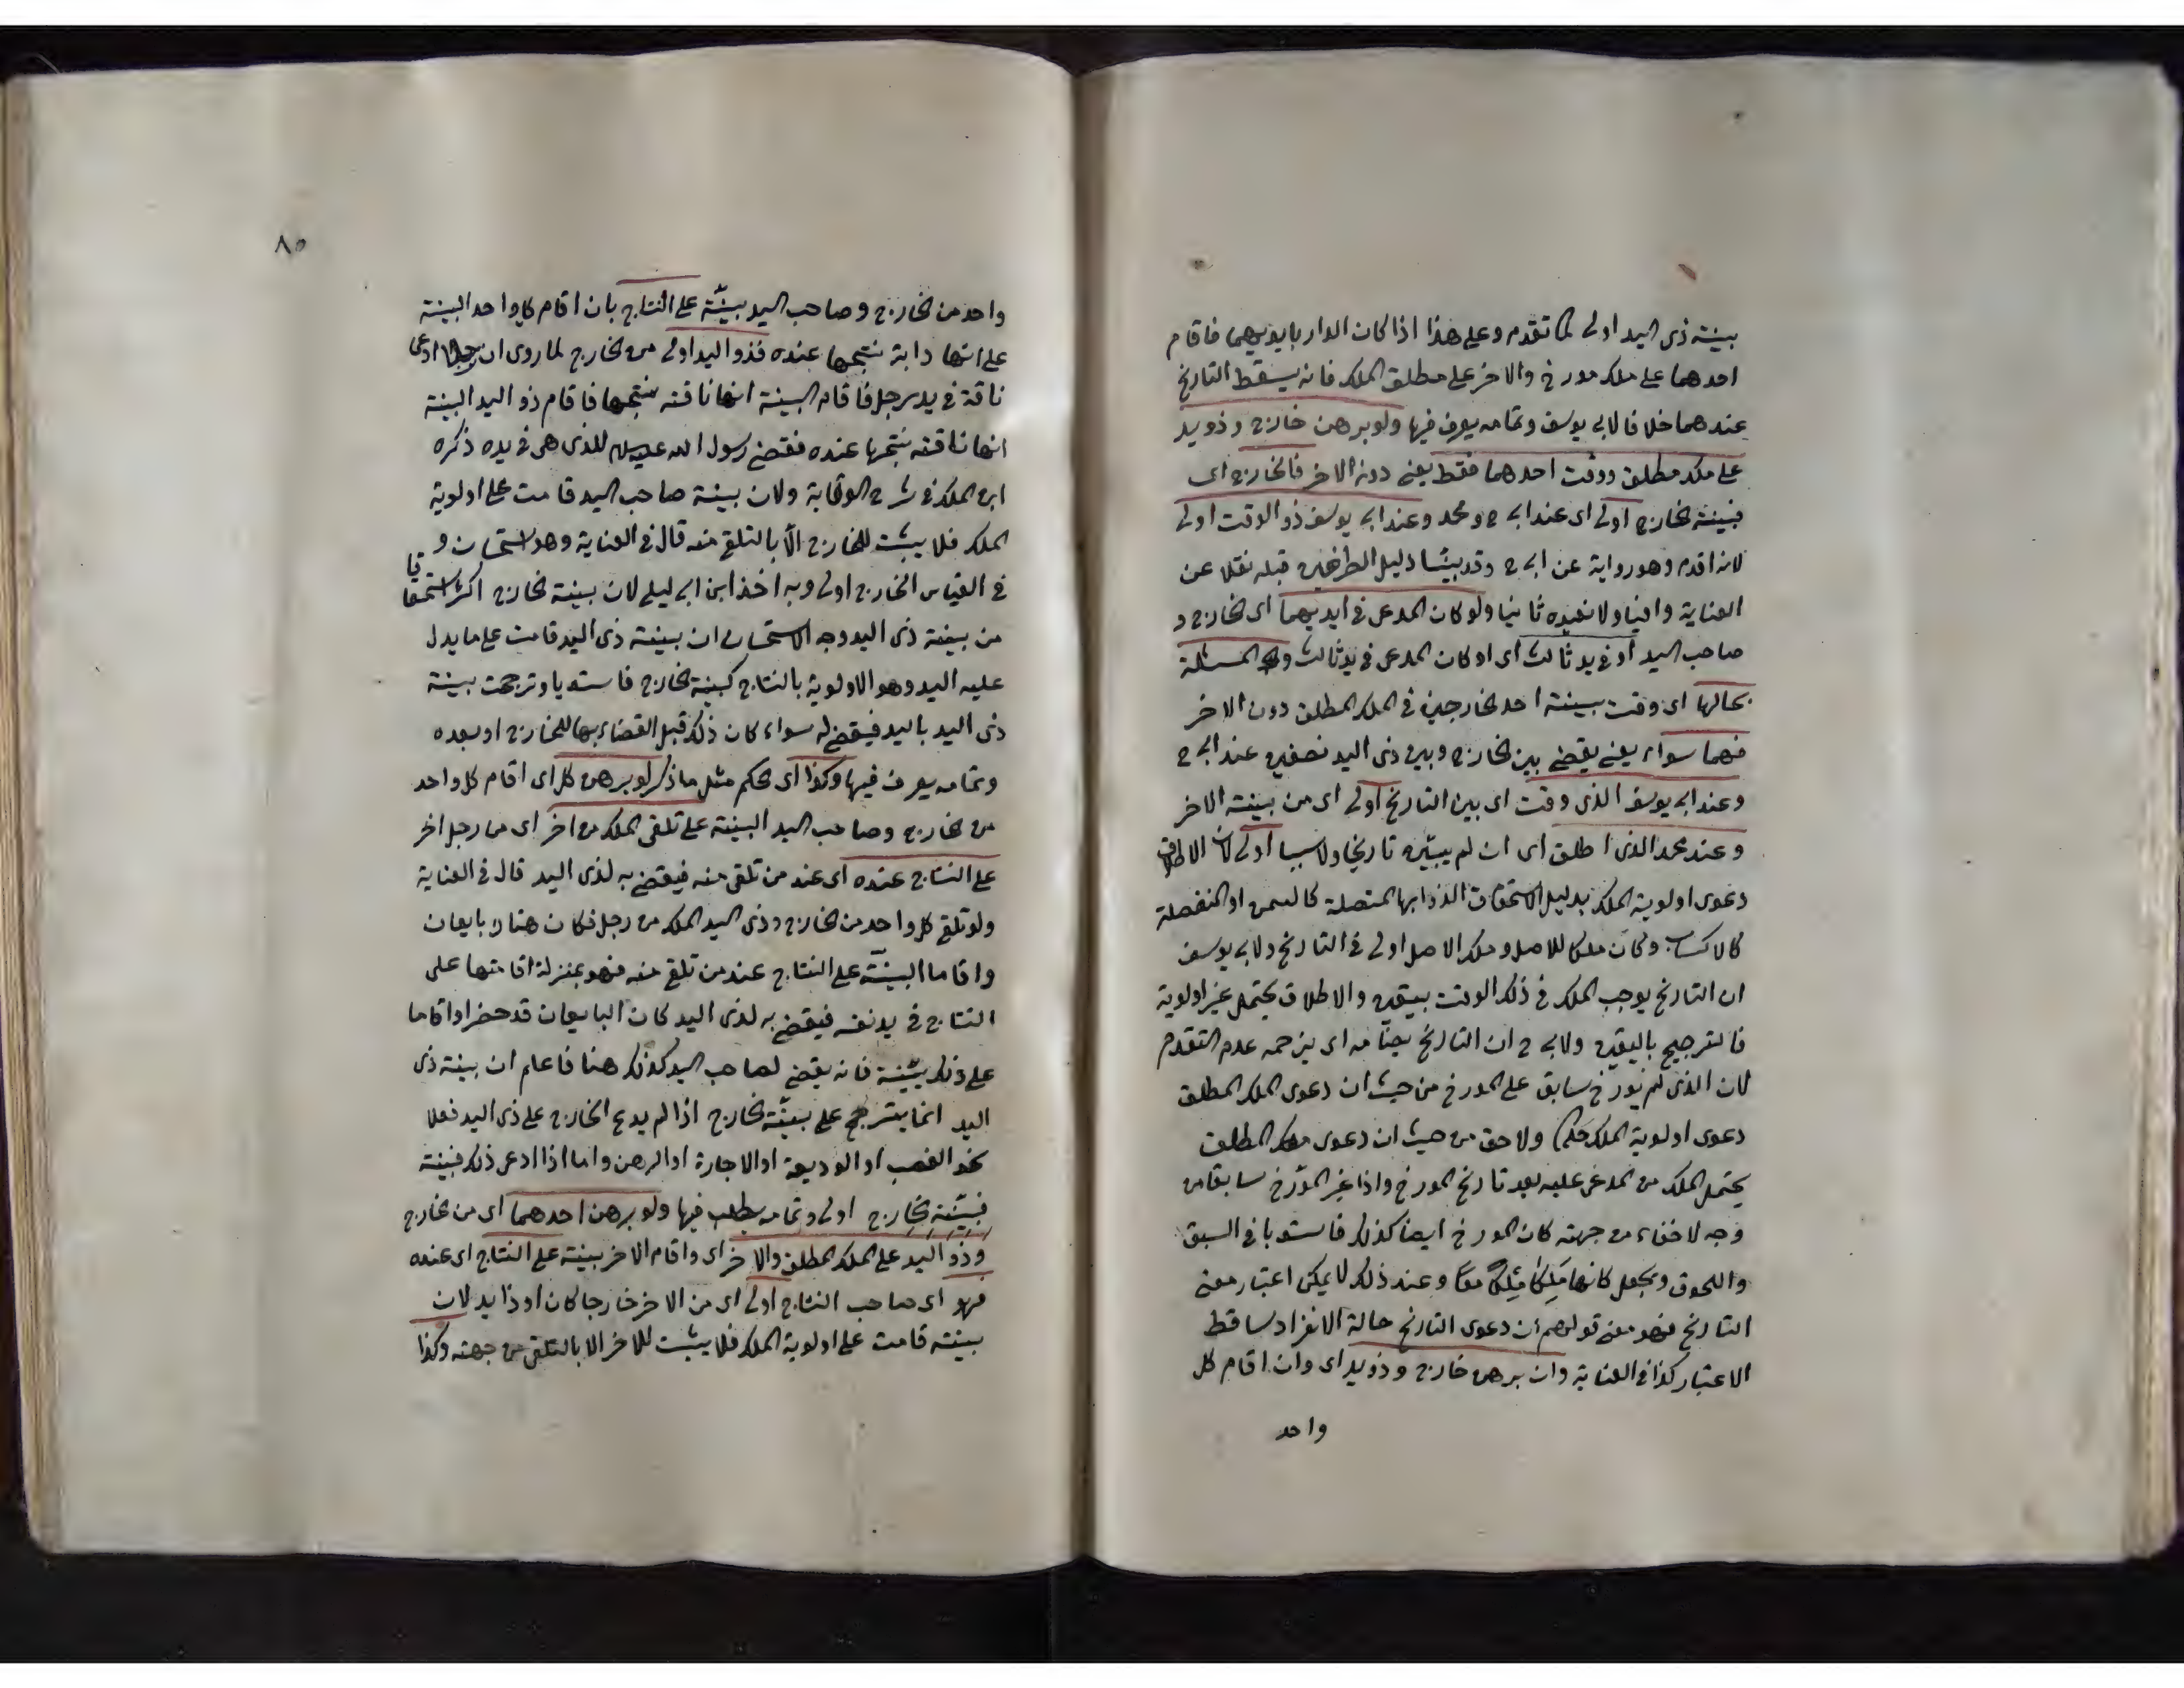 بينة ذى اليد اولى لما تقدم وعلى هذا اذا كان الدار بايديهما فاقام
احدهما على ملك مورخ والاخر على مطلق الملك فانه يسقط التاريخ
عندهما خلافا لابى يوسف وتمامه يعرف فيها ولو برهن خارج وذو يد
على ملك مطلق ووقت احدهما فقط يعنى دون الاخر فالخارج اى
فبينة الخارج اولى اى عند ابى ح ومحمد وعند ابى يوسف ذو الوقت اولى
لانه اقدم وهو رواية عن ابى ح وقد بينا دليل الطرفين قبله نقلا عن
العناية وافيا ولا نعيده ثانيا ولو كان المدعى فى ايديهما اى الخارج و
صاحب اليد او فى يد ثالث اى او كان المدعى فى يد ثالث والمسئلة
بحالها اى وقت بينة احد الخارجين فى الملك المطلق دون الاخر
فهما سواء يعنى يقضى بين الخارج وبين ذى اليد نصفين عند ابى ح
وعند ابى يوسف الذى وقت اى بين التاريخ اولى اى من بينة الاخر
وعند محمد الذى اطلق اى ان لم يبين تاريخا ولا سببا اولى لان الاطلاق
دعوى اولوية الملك بدليل استحقاق الزوايد المتصلة كالسمن او المنفصلة
كالاكساب وكان ملكا للاصل وملك الاصل اولى فى التاريخ ولابى يوسف
ان التاريخ يوجب الملك فى ذلك الوقت بيقين والاطلاق يحتمل غير اولوية
فالترجيح باليقين ولابى ح ان التاريخ يضامه اى يزحمه عدم التقدم
لان الذى لم يورخ سابق على المورخ من حيث ان دعوى الملك المطلق
دعوى اولوية الملك حكما ولاحق من حيث ان دعوى ملك المطلق
يحتمل الملك من المدعى عليه بعد تاريخ المورخ واذا غير المؤرخ سابقا من
وجه لاخفاء من جهته كان المورخ ايضا كذلك فاستويا فى السبق
واللحوق ويجعل كانهما ملكا معا وعند ذلك لا يمكن اعتبار معنى
التاريخ فهو معنى قولهم ان دعوى التاريخ حالة الانفراد ساقط
الاعتبار كذا فى العناية وان برهن خارج وذو يد اى وان اقام كل
واحد
٨٥
واحد من الخارج وصاحب اليد بينة على النتاج بان اقام كل واحد البينة
على انها دابة نتجها عنده فذو اليد اولى من الخارج لما روى ان رجلا ادعى
ناقة فى يد رجل فاقام البينة انها ناقته نتجها فاقام ذو اليد البينة
انها ناقته نتجها عنده فقضى رسول الله عليه السلام للذى هى فى يده ذكره
ابن الملك فى شرح الوقاية ولان بينة صاحب اليد قامت على اولوية
الملك فلا يثبت للخارج الا بالتلقى منه قال فى العناية وهو استحسان و
فى القياس الخارج اولى وبه اخذ ابن ابى ليلى لان بينة الخارج اكثر استحقاقا
من بينة ذى اليد وجه الاستحسان ان بينة ذى اليد قامت على ما يدل
عليه اليد وهو الاولوية بالنتاج كبينة الخارج فاستويا وترجحت بينة
ذى اليد باليد فيقضى له سواء كان ذلك قبل القضاء بها للخارج او بعده
وتمامه يعرف فيها وكذا اى الحكم مثل ما ذكر لو برهن كل اى اقام كل واحد
من الخارج وصاحب اليد البينة على تلقى الملك من اخر اى من رجل اخر
على النتاج عنده اى عند من تلقى منه فيقضى به لذى اليد قال فى العناية
ولو تلقى كل واحد من الخارج وذى اليد الملك من رجل فكان هناك بايعان
واقاما البينة على النتاج عند من تلقى منه فهو بمنزلة اقامتها على
النتاج فى يد نفسه فيقضى به لذى اليد كان البايعان قد حضرا واقاما
على ذلك بينة فانه يقضى لصاحب اليد كذلك هنا فاعلم ان بينة ذى
اليد انما يترجح على بينة الخارج اذا لم يدع الخارج على ذى اليد فعلا
نحو الغصب او الوديعة او الاجارة او الرهن واما اذا ادعى ذلك فبينة
فبينة الخارج اولى وتمامه يطلب فيها ولو برهن احدهما اى من الخارج
وذو اليد على الملك المطلق والاخر اى واقام الاخر بينة على النتاج اى عنده
فهو اى صاحب النتاج اولى اى من الاخر خارجا كان او ذا يد لان
بينته قامت على اولوية الملك فلا يثبت للاخر الا بالتلقى من جهته وكذا